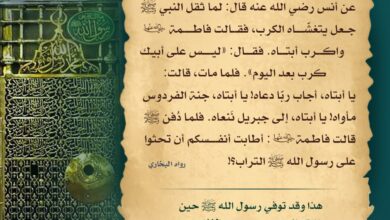 عن أنس رضي الله عنه قال: لما ثقل النبي ﷺ
جعل يتغشّاه الكرب، فقالت فاطمة
واكرب أبتاه. فقال: «ليس على أبيك
كرب بعد اليوم». فلما مات، قالت:
يا أبتاه، أجاب ربّا دعاه! يا أبتاه، جنة الفردوس
مأواه! يا أبتاه، إلى جبريل نَنعاه. فلما دُفن ﷺ
قالت فاطمة: أطابت أنفسكم أن تحثوا
على رسول الله ﷺ التراب؟!
رواه البخاري
هذا وقد توفي رسول الله ﷺ حين